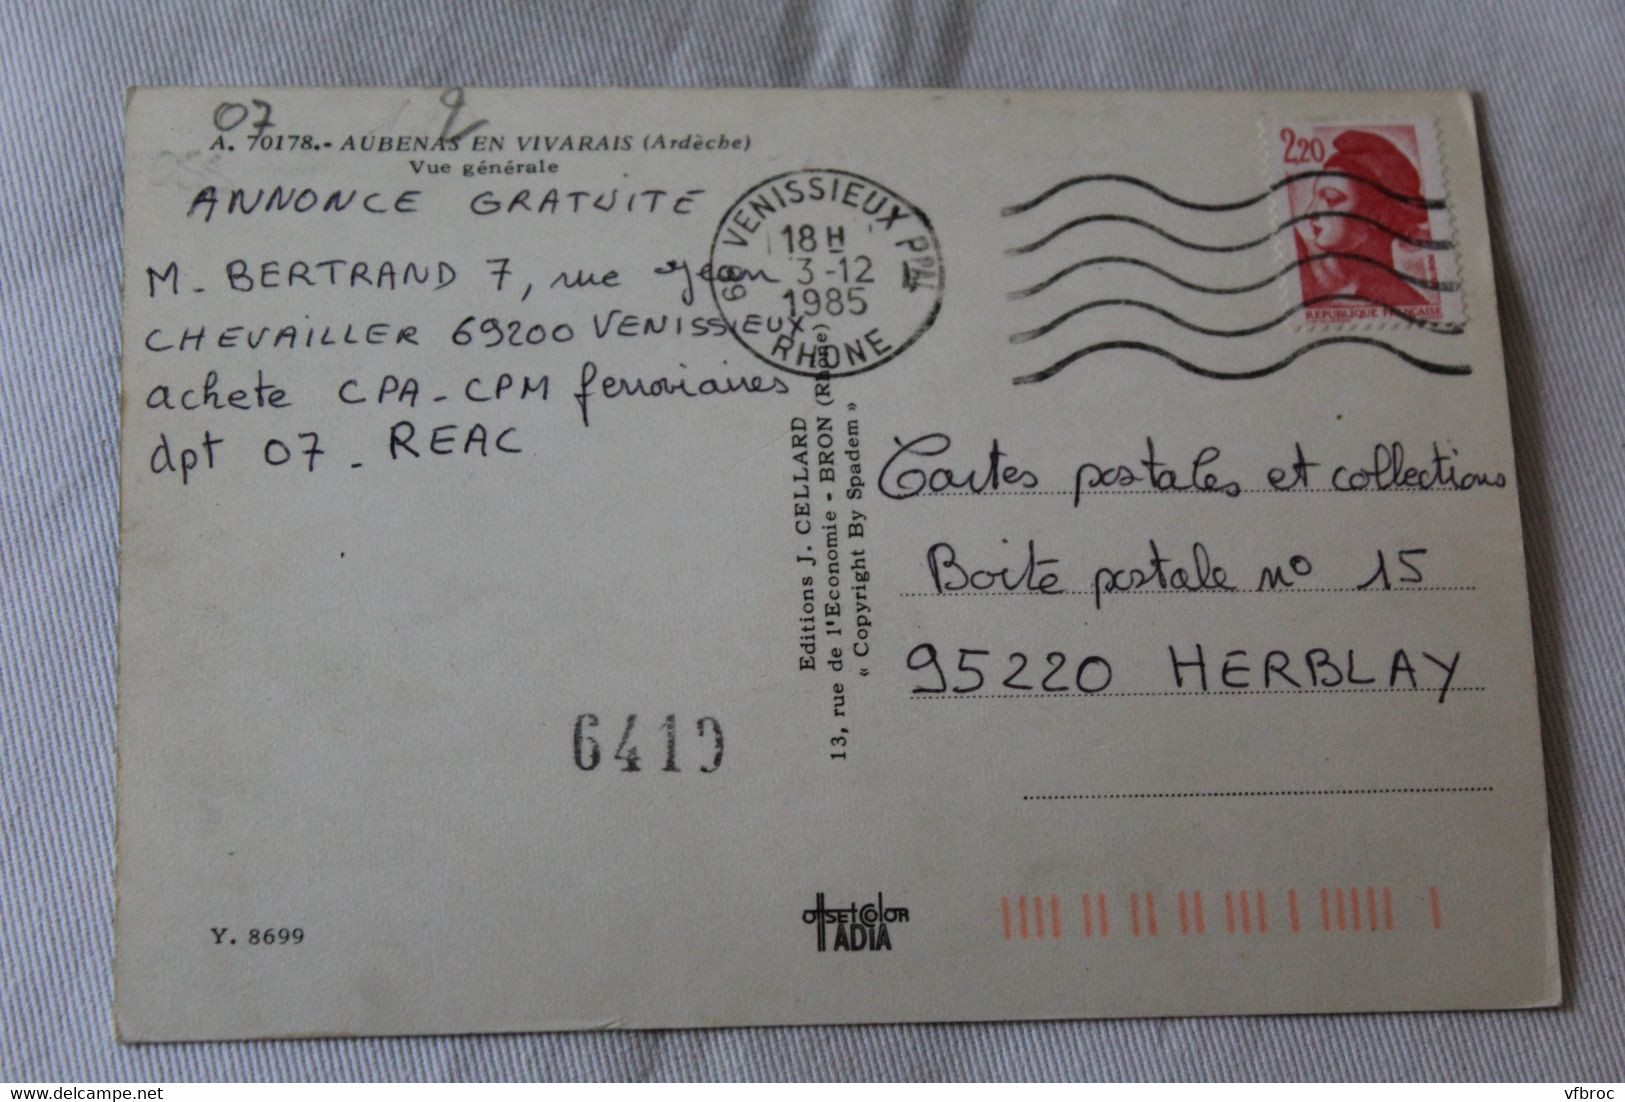 07
A. 70178.- AUBENAS EN VIVARAIS (Ardèche)
Vue générale
ANNONCE GRATUITE
M. BERTRAND 7, rue Jean
CHEVAILLER 69200 VENISSIEUX
achete CPA-CPM ferroviaires
dpt 07 - REAC
69 VENISSIEUX PAL
18 H
3-12
1985
RHONE
2,20
REPUBLIQUE FRANCAISE
Editions J. CELLARD
13, rue de l'Economie - BRON (Rhône)
« Copyright By Spadem »
Cartes postales et collections
Boite postale n° 15
95220 HERBLAY
6419
Y. 8699
OFFSET COLOR
IADIA
vfbroc